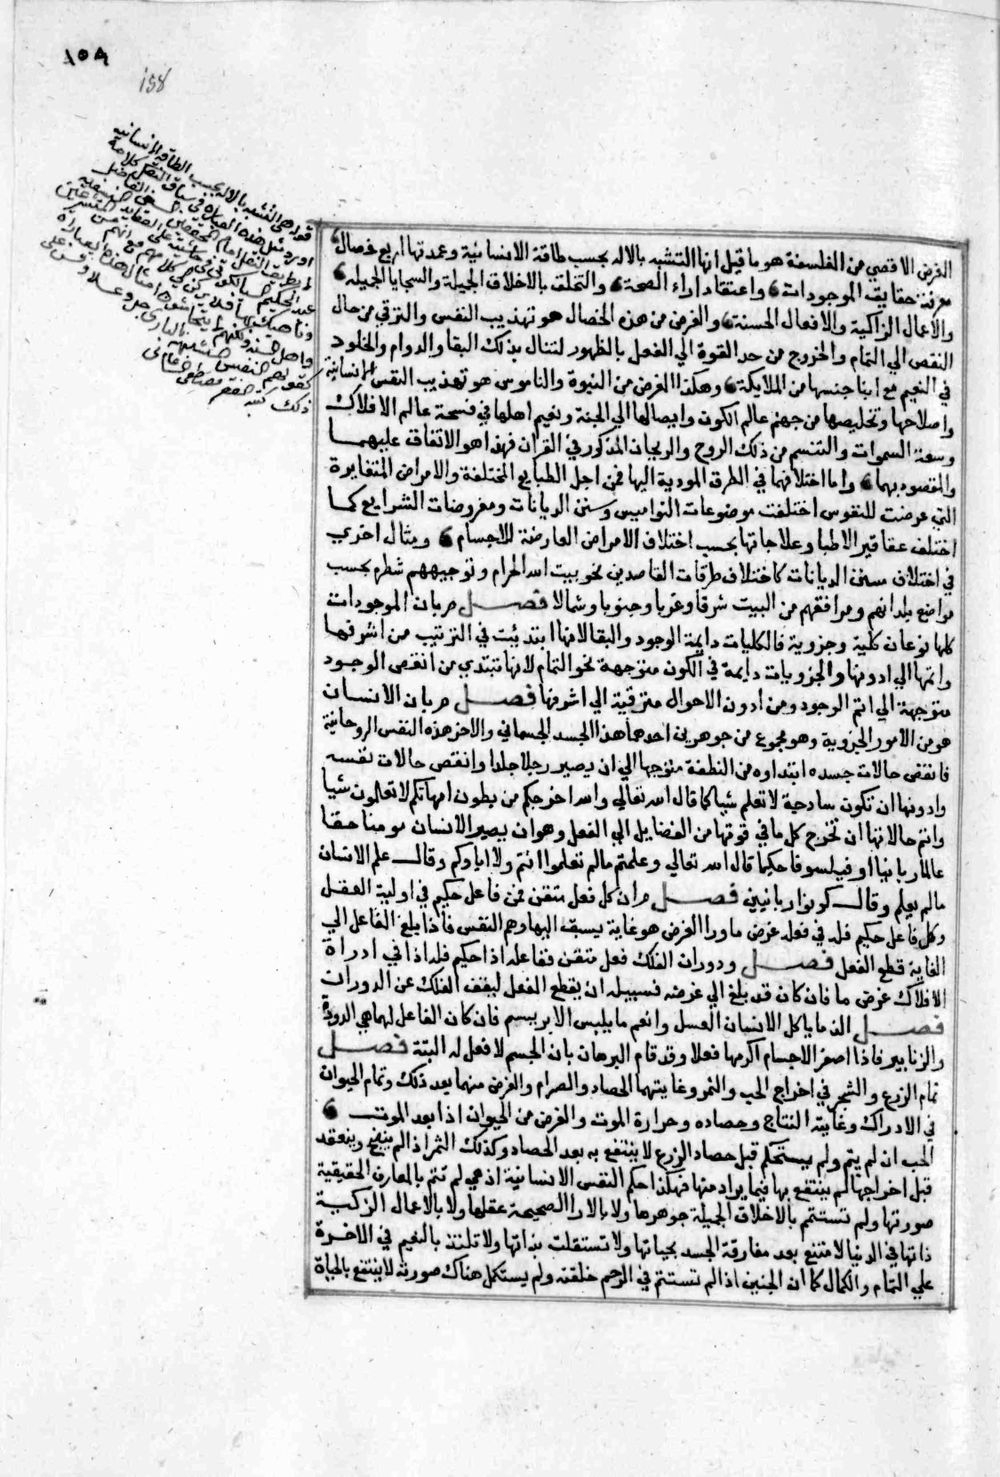 ١٥٨
158
الغرض الاقصي من الفلسفة هو ما قيل انها التشبه بالاله بحسب طاقة الانسانية وعمدتها اربع خصال
معرفة حقايق الموجودات واعتقاد اراء الصحة والتخلق بالاخلاق الجميلة والسجايا الجميله
والاعمال الزاكية والافعال الحسنة والغرض من هذه الخصال هو تهذيب النفس والترقي من حال
النقص الي التمام والخروج من حد القوة الي الفعل بالظهور لتنال بذلك البقا والدوام والخلود
في النعيم مع ابنا جنسها من الملايكة وهكذا الغرض من النبوة والناموس هو تهذيب النفس الانسانية
واصلاحها وتخليصها من جهنم عالم الكون وايصالها الي الجنة ونعيم اهلها في فسحة عالم الافلاك
وسعة السموات والتنسم من ذلك الروح والريحان المذكور في القران فهذا هو الاتفاق عليهما
والمقصود بهما واما اختلافهما في الطرق المودية اليها فمن اجل الطبايع المختلفة والامراض المتغايرة
التي عرضت للنفوس اختلفت موضوعات النواميس وسنن الديانات ومفروضات الشرايع كما
اختلف عقاقير الاطبا وعلاجاتها بحسب اختلاف الامراض العارضة للاجسام ومثال اخري
في اختلاف سنن الديانات كاختلاف طرقات القاصدين نحو بيت الله الحرام وتوجيههم شطره بحسب
مواضع بلدانهم ومرافقهم من البيت شرقا وغربا وجنوبا وشمالا فصل مر بان الموجودات
كلها نوعان كلية وجزوية فالكليات دايمة الوجود والبقا لانها ابتديت في الترتيب من اشرفها
وانتها الي ادونها والجزويات دايمة في الكون متوجهة نحو التمام لانها تبتدي من انقص الوجود
متوجهة الي اتم الوجود ومن ادون الاحوال مترقية الي اشرفها فصل مر بان الانسان
هو من الامور الجزوية وهو مجموع من جوهرين احدهما هذا الجسد الجسماني والاخر هذه النفس الروحانية
فانقص حالات جسده ابتداوه من النطفة متوجها الي ان يصير رجلا جلدا وانقص حالات نفسه
وادونها ان تكون ساذجية لا تعلم شيا كما قال الله تعالي والله اخرجكم من بطون امهاتكم لا تعلمون شيا
واتم حالاتها ان تخرج كل ما في قوتها من الفضايل الي الفعل وهو ان يصير الانسان مومنا حقا
عالما ربانيا او فيلسوفا حكيما قال الله تعالي وعلمتم ما لم تعلموا انتم ولا اباوكم وقال علم الانسان
ما لم يعلم وقال كونوا ربانيين فصل مر ان كل فعل متقن فمن فاعل حكيم في اولية العقل
وكل فاعل حكيم فله في فعله غرض ما ورا الغرض هو غاية يسبق اليها وهم النفس فاذا بلغ الفاعل الي
الغاية قطع الفعل فصل ودوران الفلك فعل متقن ففاعله اذا حكيم فله اذا في ادراة
الافلاك غرض ما فان كان قد بلغ الي غرضه فسبيله ان يقطع الفعل ليقف الفلك عن الدوران
فصل الذ ما ياكل الانسان العسل وانعم ما يلبس الابريسم فان كان الفاعل لهما هي الدودة
والزنابير فاذا اصغر الاجسام اكرمها فعلا وقد قام البرهان بان الجسم لا فعل له البتة فصل
تمام الزرع والشجر في اخراج الحب والثمر وغايتهما الحصاد والصرام والغرض منهما بعد ذلك وتمام الحيوان
في الادراك وغايته النتاج وحصاده وحرارة الموت والغرض من الحيوان اذا بعد الموت
الحب ان لم يتم ولم يستحكم قبل حصاد الزرع لا ينتفع به بعد الحصاد وكذلك الثمر اذا لم ينضج وينعقد
قبل اخراجها لم ينتفع بها فيما يراد منها فهكذا حكم النفس الانسانية اذ هي لم تتم بالمعارف الحقيقية
صورتها ولم تستتم بالاخلاق الجميلة جوهرها ولا بالارا الصحيحة عقلها ولا بالاعمال الزكية
ذاتها في الدنيا لا منتفع بعد مفارقة الجسد بحياتها ولا تستقلت بذاتها ولا تلتذ بالنعيم في الاخرة
علي التمام والكمال كما ان الجنين اذا لم تستتم في الرحم خلقته ولم يستكمل هناك صورته لا ينتفع بالحياة
قوله هي التشبه بالاله بحسب الطاقة الانسانية